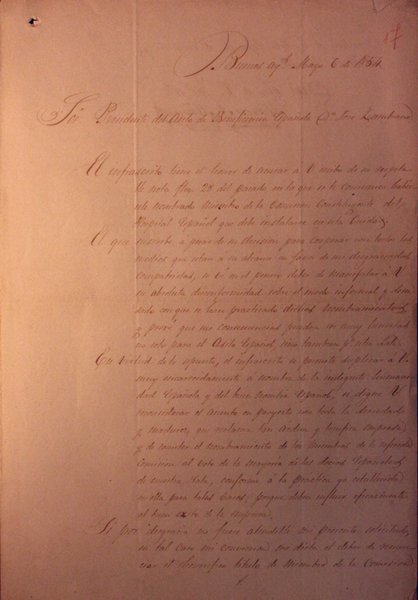 17
Buenos Ays. Mayo 6 de 1854.
Sor Presidente del Asilo de Beneficencia Española Dn. José Zambrano
El infrascrito tiene el honor de acusar a V. recibo de su respeta-
ble nota fha 28 del pasado en la que se le comunica haber
sido nombrado miembro de la Comision Constituyente del
Hospital Español que debe instalarse en esta Ciudad.
El que suscribe a pesar de su decision para cooperar con todos los
medios que estan a su alcance en favor de sus desgraciados
compatriotas, se vé en el penoso deber de manifestar a V.
su absoluta disconformidad sobre el modo informal y
con que se han practicado dichos nombramientos
y que sus consecuencias pueden ser muy funestas
no solo para el Asilo Español, sino tambien pa. esta Sala.
En virtud de lo expuesto, el infrascrito se permite suplicar a V.
muy encarecidamente á nombre de la indigente humani-
dad Española y del buen nombre Español, se digne V.
reconsiderar el asunto en proyecto con toda la
y madurez, que reclama tan ardua y benefica empresa,
y de someter el nombramiento de los miembros de la referida
Comision al voto de la mayoria de los Socios Españoles
de nuestra Sala, conforme á la practica ya establecida
en ella para tales casos, porque deben influir eficazmente
al buen exito de la empresa.
Si por desgracia no fuese atendible mi presente solicitud,
en tal caso mi conciencia me dicta el deber de renun-
ciar el honorifico titulo de miembro de la Comision